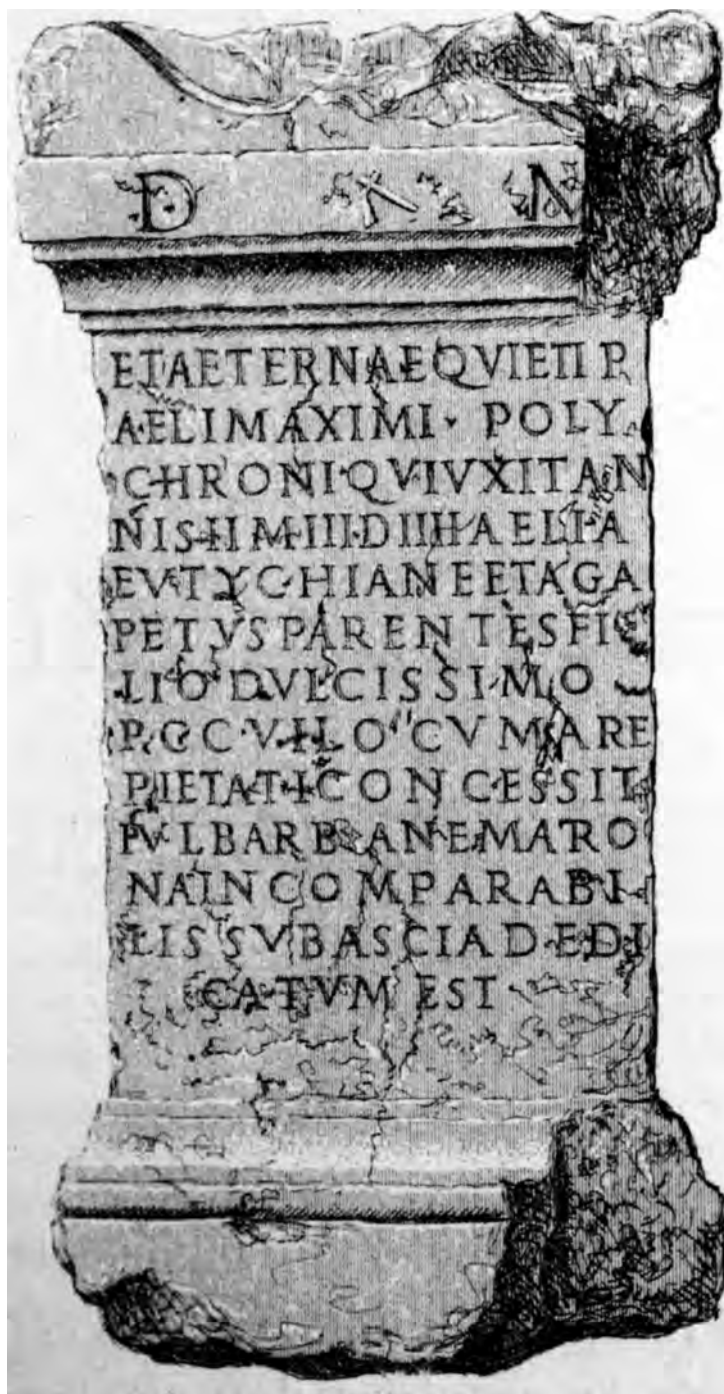 D M
ET AETERNAE QVIETI P
AELI MAXIMI · POLY
CHRONI · QVI VIXIT AN
NIS · II M · III · D IIII · AELIA
EVTYCHIANE ET AGA
PETVS PARENTES FI
LIO DVLCISSIMO
P · C · C · V I LOCVM ARE
PIETATI CONCESSIT
PVL BARBANE MATRO
NA INCOMPARABI
LIS SVB ASCIA DEDI
CATVM EST